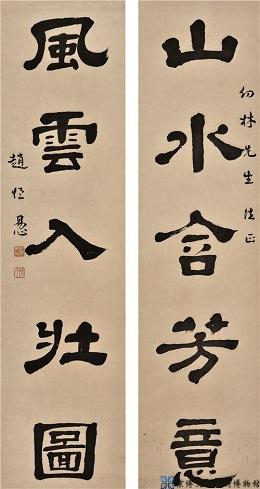 山水含芳意
幼林先生法正
風雲入壯圖
趙恒惖
博物館